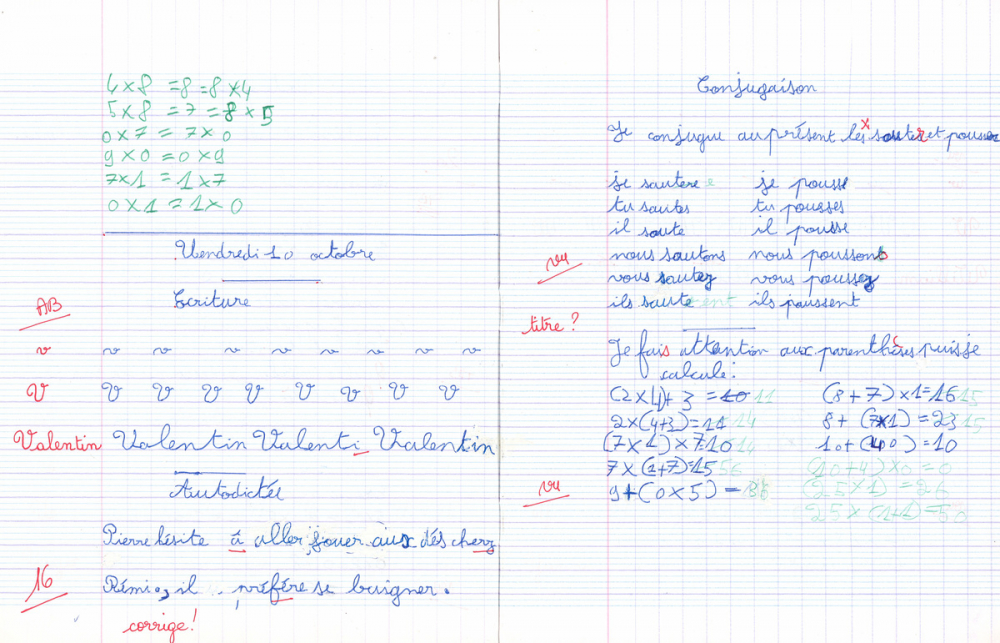 4×8 =8=8×4
5×8 =7=8×5
0×7=7×0
9×0=0×9
7×1=1×7
0×1=1×0
Vendredi 10 octobre
AB
Ecriture
v v v v v v v v v
V V V V V V V V V
Valentin Valentin Valenti Valentin
Autodictée
Pierre hésite à aller jouer aux dés chez
16
Rémi, il préfère se baigner.
corrige!
Conjugaison
Je conjugue au présent les x sauter et pousser
je sautere je pousse
tu sautes tu pousses
il saute il pousse
vu
nous sautons nous poussons
vous sautez vous poussez
ils sautent ils poussent
titre ?
Je fais attention aux parenthèses puis je
calcule:
(2×4)+3 =10 11 (8+7)×1=16 15
2×(4+3)=14 14 8+(7×1)=23 15
(7×1)×7 10 10+( 0)=10
7×(1+7)=15 56 (10+4)×0=0
vu
9+(0×5)= (25×1)=
25×(1+1)=50